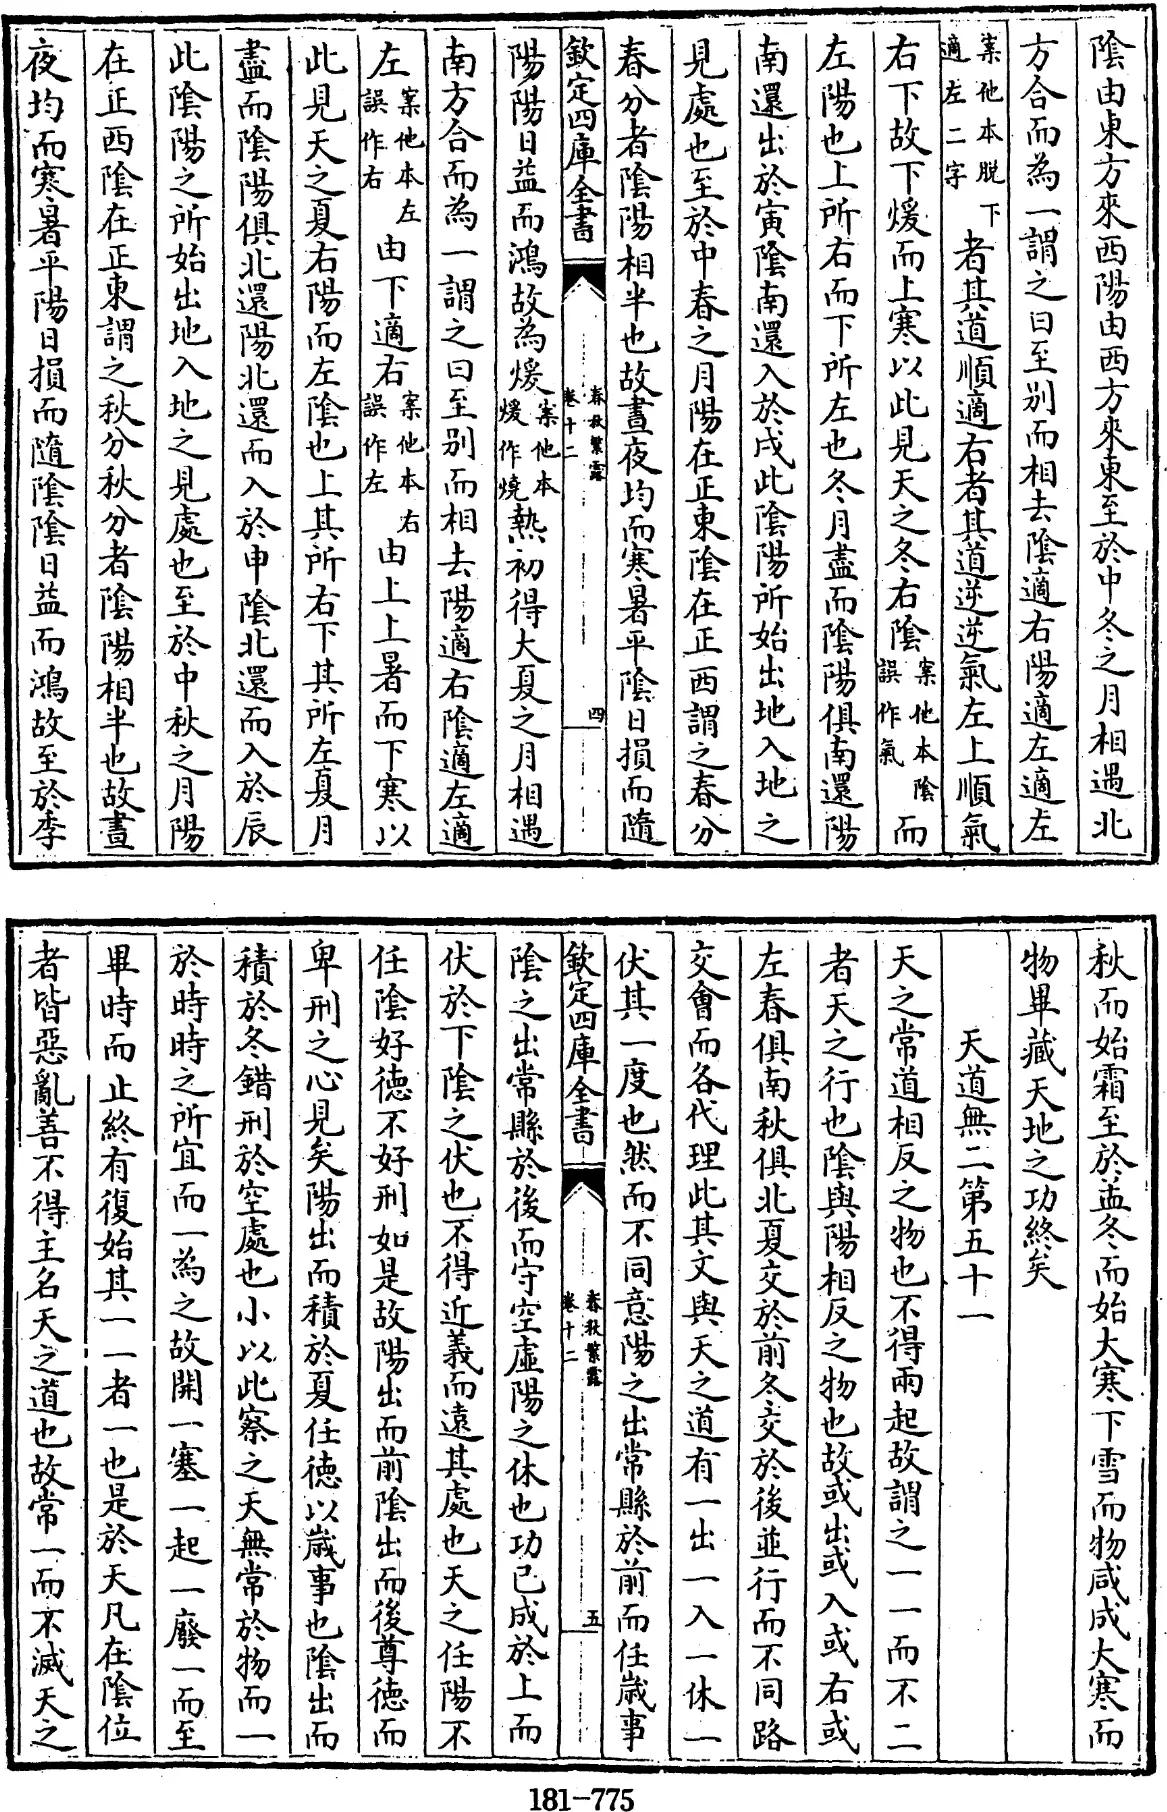 陰由東方來西陽由西方來東至於中冬之月相遇北
方合而為一謂之曰至别而相去陰適右陽適左適左
案他本脱下
適左二字
者其道順適右者其道逆逆氣左上順氣
右下故下煖而上寒以此見天之冬右陰
案他本陰
誤作氣
而
左陽也上所右而下所左也冬月盡而陰陽俱南還陽
南還出於寅陰南還入於戌此陰陽所始出地入地之
見處也至於中春之月陽在正東陰在正西謂之春分
春分者陰陽相半也故晝夜均而寒暑平陰日損而隨
欽定四庫全書
春秋繁露
卷十二
四
陽陽日益而鴻故為煖
案他本
煖作燒
熱初得大夏之月相遇
南方合而為一謂之曰至别而相去陽適右陰適左適
左
案他本左
誤作右
由下適右
案他本右
誤作左
由上上暑而下寒以
此見天之夏右陽而左陰也上其所右下其所左夏月
盡而陰陽俱北還陽北還而入於申陰北還而入於辰
此陰陽之所始出地入地之見處也至於中秋之月陽
在正西陰在正東謂之秋分秋分者陰陽相半也故晝
夜均而寒暑平陽日損而隨陰陰日益而鴻故至於季
秋而始霜至於孟冬而始大寒下雪而物咸成大寒而
物畢藏天地之功終矣
天道無二第五十一
天之常道相反之物也不得兩起故謂之一一而不二
者天之行也陰與陽相反之物也故或出或入或右或
左春俱南秋俱北夏交於前冬交於後並行而不同路
交會而各代理此其文與天之道有一出一入一休一
伏其一度也然而不同意陽之出常縣於前而任歲事
欽定四庫全書
春秋繁露
卷十二
五
陰之出常縣於後而守空虛陽之休也功已成於上而
伏於下陰之伏也不得近義而遠其處也天之任陽不
任陰好德不好刑如是故陽出而前陰出而後尊德而
卑刑之心見矣陽出而積於夏任德以歲事也陰出而
積於冬錯刑於空處也小以此察之天無常於物而一
於時時之所宜而一為之故開一塞一起一廢一而至
畢時而止終有復始其一一者一也是於天凡在陰位
者皆惡亂善不得主名天之道也故常一而不滅天之
181-775